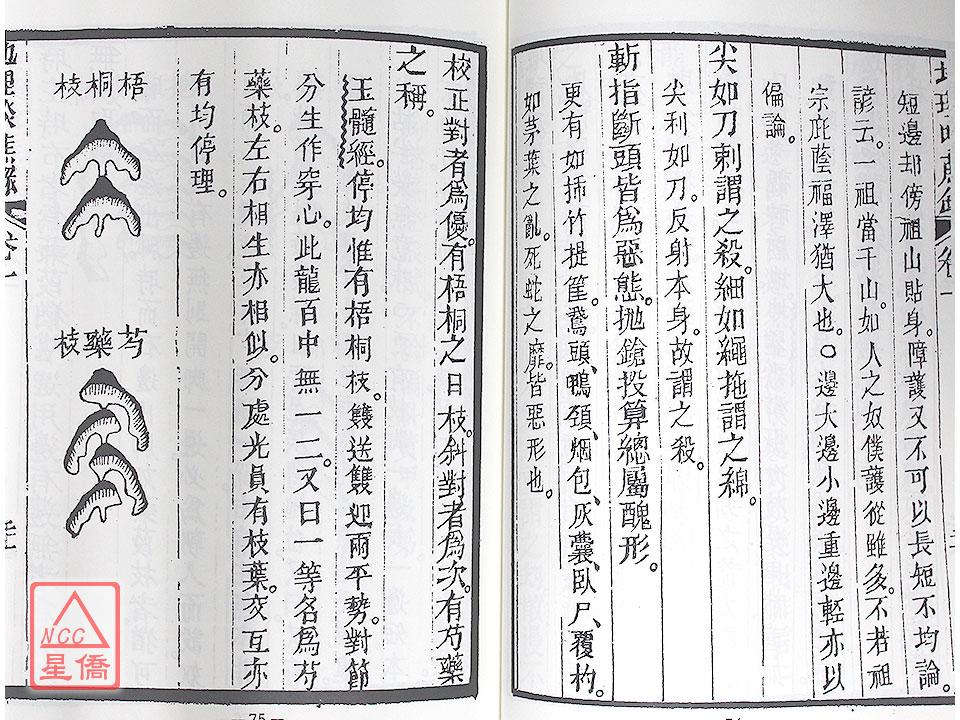 短邊却傍祖山貼身障護又不可以長短不均論。
諺云。一祖當千山。如人之奴僕護從雖多。不若祖
宗庇蔭福澤猶大也。〇邊大邊小邊重邊輕亦以
偏論。
尖如刀刺謂之殺。細如繩拖謂之綿。
尖利如刀。反射本身。故謂之殺。
斬指斷頭皆爲惡態。抛鎗投算總屬醜形。
更有如插竹提筐。鵞頭、鴨頚、烟包、灰囊、臥尸、覆杓。
如茅葉之亂。死蛇之靡。皆惡形也。
74
校正對者爲優。有梧桐之日枝。斜對者爲次。有芍藥
之稱。
玉髓經。停均惟有梧桐枝。雙送雙迎兩平勢。對節
分生作穿心。此龍百中無一二。又曰一等名爲芍
藥枝。左右相生亦相似。分處光員有枝葉。交互亦
有均停理。
梧桐枝
芍藥枝
卷一
75
NCC
星僑